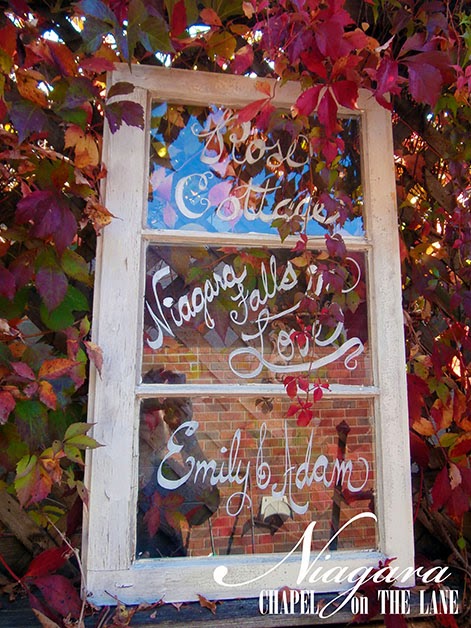 Rose
Cottage
Niagara
Falls in
Love
Emily & Adam
Niagara
CHAPEL on THE LANE